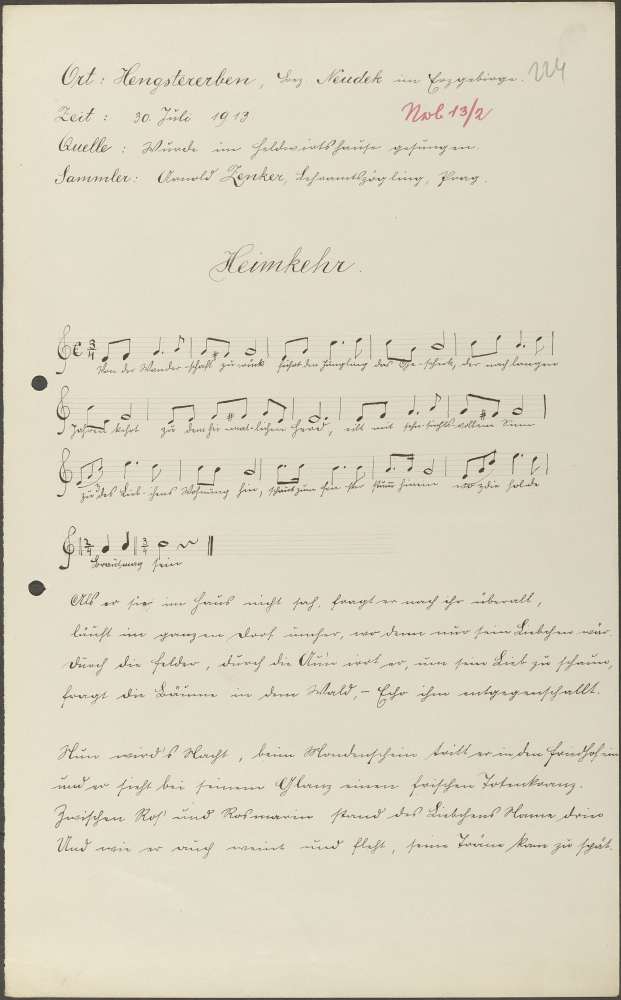 Ort: Hengstererben, bez Neudek im Erzgebirge. 224
Zeit: 30. Juli 1913
Nro 13/2
Quelle: Wurde im Feldwirtshause gesungen.
Sammler: Arnold Zenker, Lehramtszögling, Prag.
Heimkehr.
Von der Wander-schaft zu-rück führt den Jüngling das Ge-schick, der nach langen
Jahren kehrt zu dem hei-mat-lichen Herd, eilt mit sehn-suchts-vollem Sinn
zu des Lieb-chens Wohnung hin, schaut zum Fen-ster stumm hinein wo die holde
Braut mag sein
Als er sie im Haus nicht sah, fragt er nach ihr überall,
läuft im ganzen Dorf umher, wo denn nur sein Liebchen wär.
Durch die Felder, durch die Au'n irrt er, um sein Lieb zu schaun,
fragt die Bäume in dem Wald, – Echo ihm entgegenschallt.
Nun wird's Nacht, beim Mondenschein tritt er in den Friedhof ein
und er sieht bei seinem Glanz einen frischen Totenkranz.
Zwischen Ros' und Rosmarin stand des Liebchens Name drin
Und wie er auch weint und fleht, seine Träne kam zu spät.